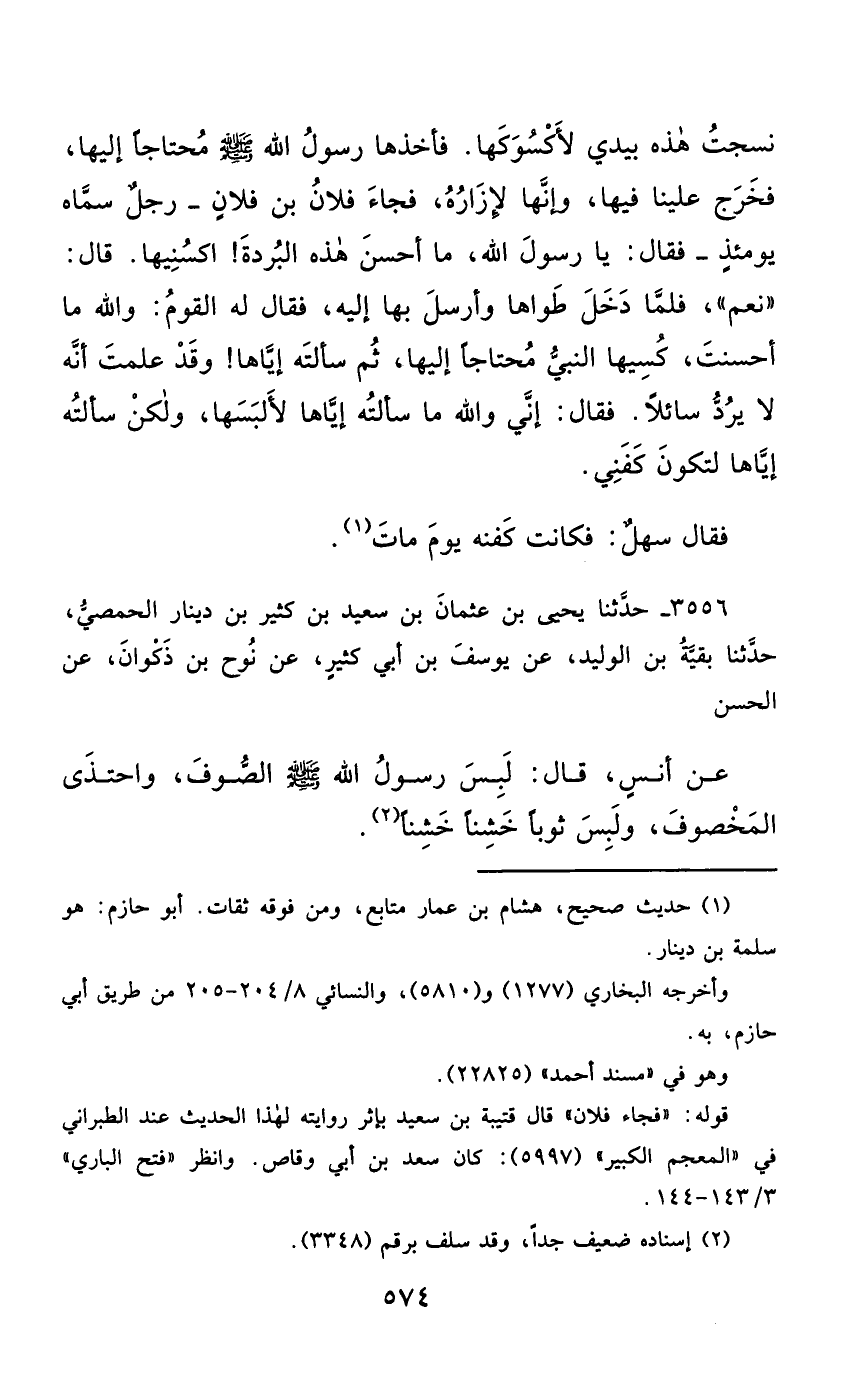 نسجتُ هٰذه بيدي لأَكْسُوَكَها. فأخذها رسولُ الله ﷺ مُحتاجاً إليها،
فخَرَج علينا فيها، وإنَّها لإزَارُهُ، فجاءَ فلانُ بن فلانٍ ـ رجلٌ سمَّاه
يومئذٍ ـ فقال: يا رسولَ الله، ما أحسنَ هٰذه البُردةَ! اكسُنِيها. قال:
«نعم»، فلمَّا دَخَلَ طَواها وأرسلَ بها إليه، فقال له القومُ: والله ما
أحسنتَ، كُسِيها النبيُّ مُحتاجاً إليها، ثُم سألتَه إيَّاها! وقَدْ علمتَ أنَّه
لا يرُدُّ سائلاً. فقال: إنَّي والله ما سألتُه إيَّاها لأَلبَسَها، ولٰكنْ سألتُه
إيَّاها لتكونَ كَفَنِي.
فقال سهلٌ: فكانت كَفنه يومَ ماتَ(١).
٣٥٥٦ـ حدَّثنا يحيى بن عثمانَ بن سعيد بن كثير بن دينار الحمصيُّ،
حدَّثنا بقيَّةُ بن الوليد، عن يوسفَ بن أبي كثيرٍ، عن نُوح بن ذَكْوانَ، عن
الحسن
عن أنسٍ، قال: لَبِسَ رسولُ الله ﷺ الصُّوفَ، واحتذَى
المَخْصوفَ، ولَبِسَ ثوباً خَشِناً خَشِناً(٢).
(١) حديث صحيح، هشام بن عمار متابع، ومن فوقه ثقات. أبو حازم: هو
سلمة بن دينار.
وأخرجه البخاري (١٢٧٧) و(٥٨١٠)، والنسائي ٨/ ٢٠٤-٢٠٥ من طريق أبي
حازم، به.
وهو في «مسند أحمد» (٢٢٨٢٥).
قوله: «فجاء فلان» قال قتيبة بن سعيد بإثر روايته لهٰذا الحديث عند الطبراني
في «المعجم الكبير» (٥٩٩٧): كان سعد بن أبي وقاص. وانظر «فتح الباري»
٣/ ١٤٣-١٤٤.
(٢) إسناده ضعيف جداً، وقد سلف برقم (٣٣٤٨).
٥٧٤